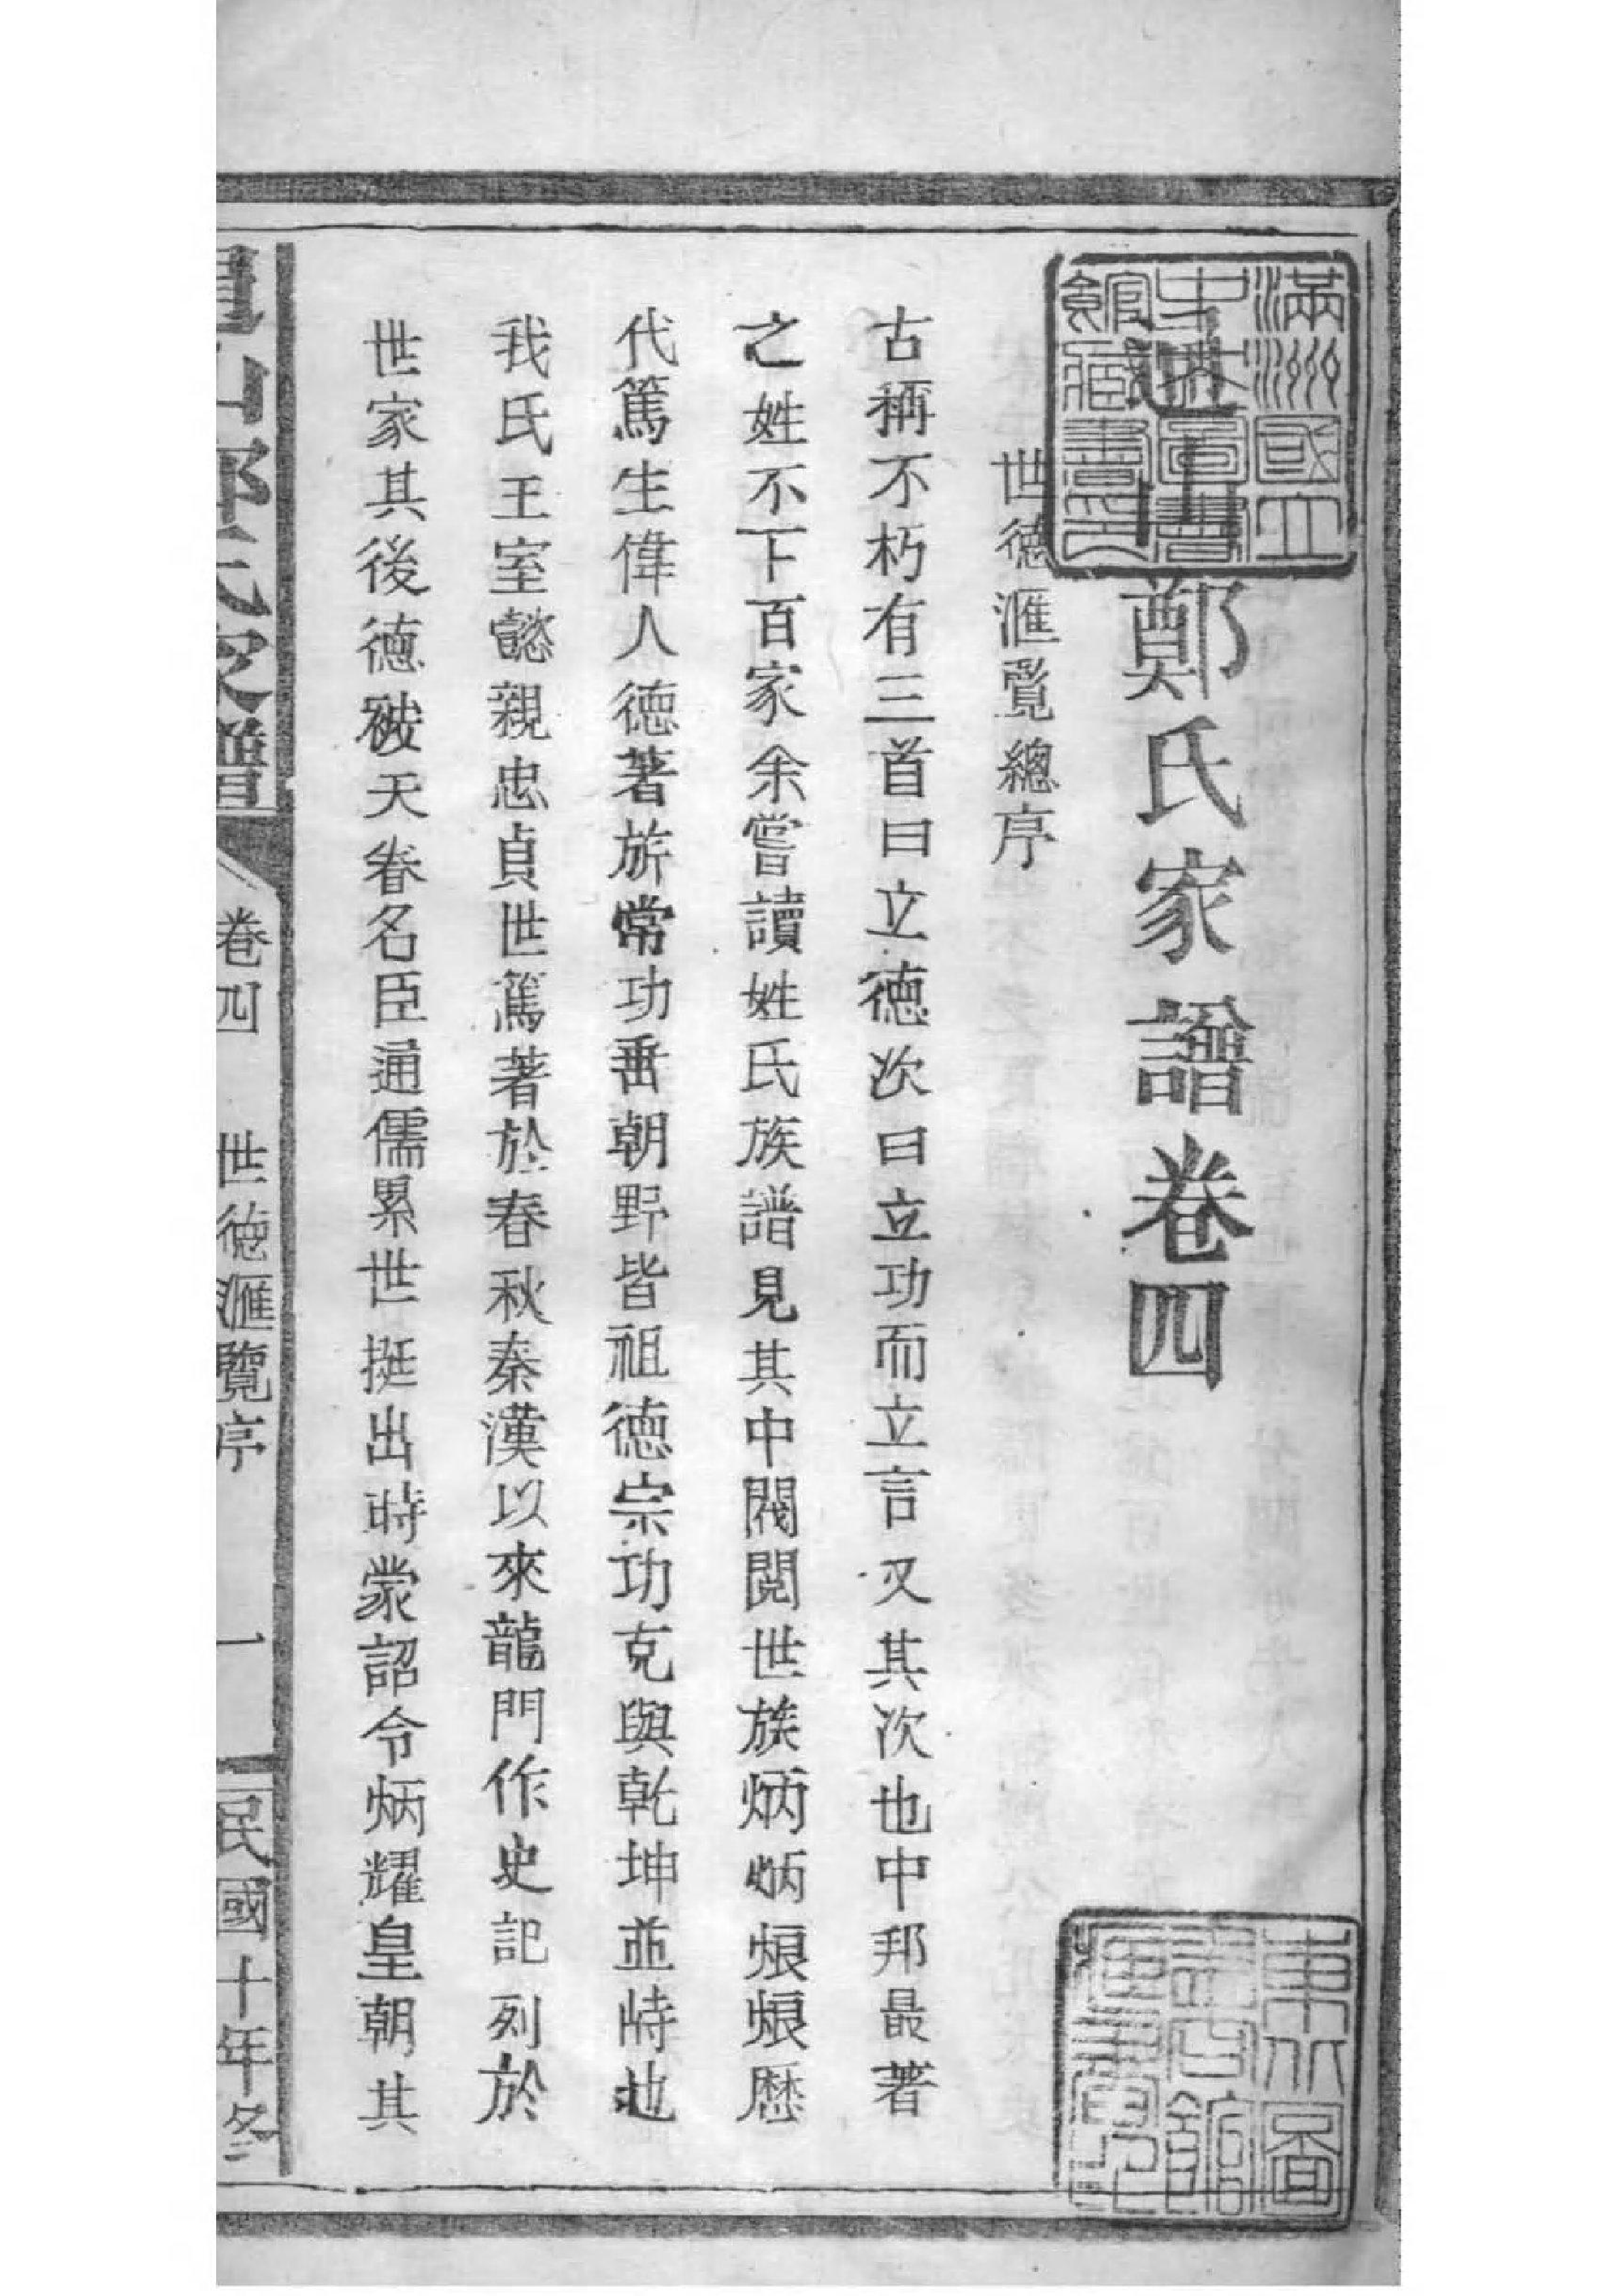 鄭氏家譜卷四
世德滙覽總序
古稱不朽有三首曰立德次曰立功而立言又其次也中邦最著
之姓不下百家余嘗讀姓氏族譜見其中閥閱世族炳炳烺烺歷
代篤生偉人德著旂常功垂朝野皆祖德宗功克與乾坤並峙也
我氏王室懿親忠貞世篤著於春秋秦漢以來龍門作史記列於
世家其後德被天眷名臣通儒累世挺出時蒙詔令炳耀皇朝其
山鄭氏家譜
卷四
世德滙覽序
一
民國十年冬
滿洲國立
中央圖書
館藏書之
東北圖
書館